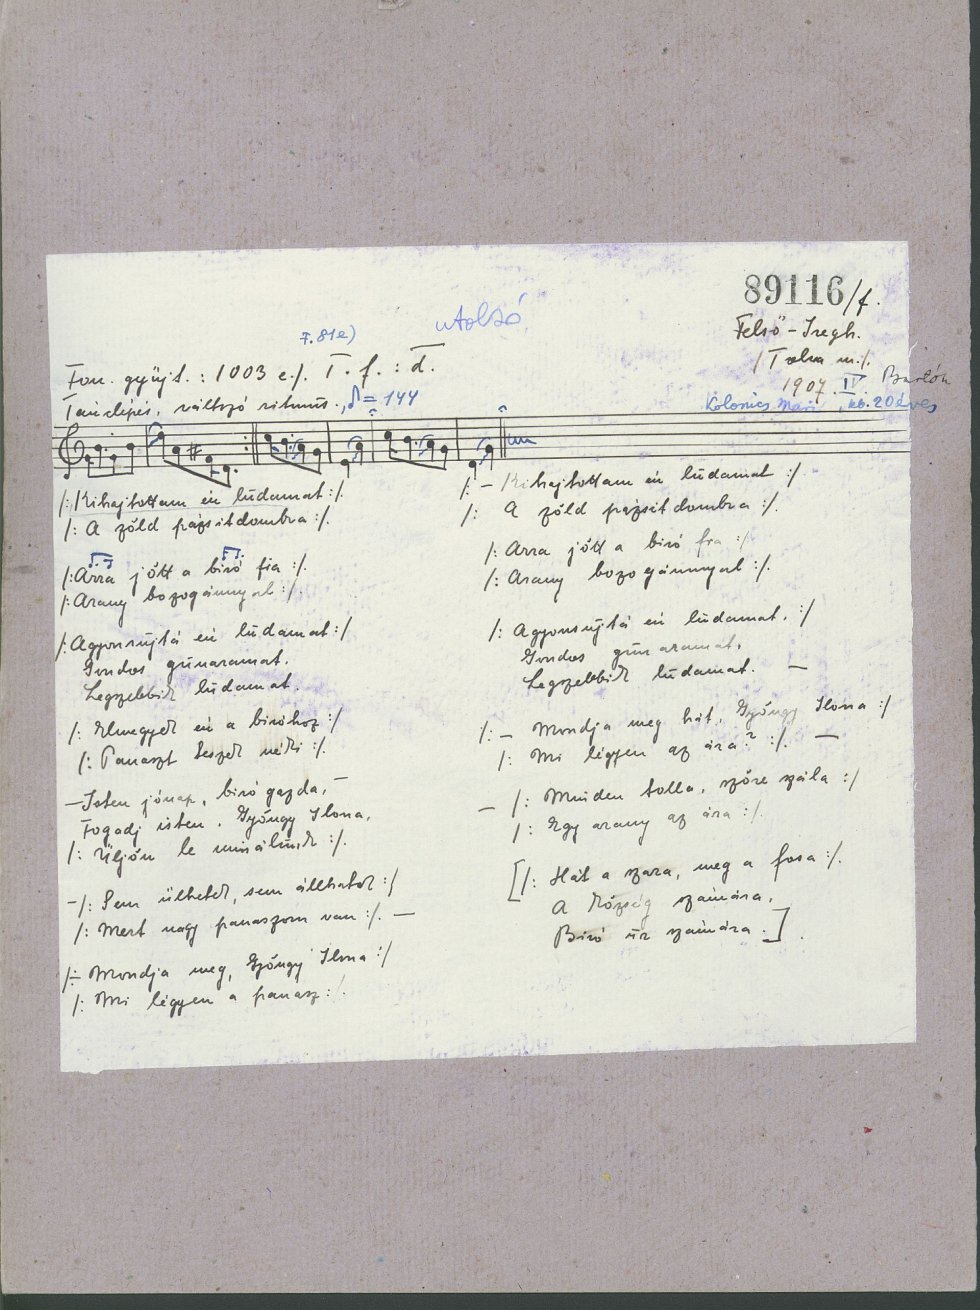 89116/f.
Felső-Iregh.
/Tolna m./.
1907. IV Bartók
Kolonics Mari, kb. 20 éves
utolsó
F. 81e)
Fon. gyüjt. : 1003 e./. T. f. : d.
Tánclépés, változó ritmus., ♪ = 144
/: Kihajtottam én ludamat :/.
/: A zöld pázsitdombra :/.
/: Arra jött a biró fia :/.
/: Arany bozogánnyal :/.
/: Agyonsújtá én ludamat :/
Gondos gunaramat,
Legszebbik ludamat.
/: Elmegyek én a biróhoz :/
/: Panaszt teszek néki :/.
– Isten jónap, biró gazda, –
Fogadj isten, Gyöngy Ilona,
/: Üljön le minálunk :/.
– /: Sem ülhetek, sem állhatok :/
/: Mert nagy panaszom van :/. –
/: – Mondja meg, Gyöngy Ilona :/
/: Mi légyen a panasz :/.
/: – Kihajtottam én ludamat :/
/: A zöld pázsitdombra :/.
/: Arra jött a biró fia :/
/: Arany bozogánnyal :/.
/: Agyonsújtá én ludamat, :/
Gondos gunaramat,
Legszebbik ludamat. –
/: – Mondja meg hát, Gyöngy Ilona :/
/: Mi légyen az ára? :/. –
– /: Minden tolla, szőre szála :/
/: Egy arany az ára :/.
[/: Hát a szara, meg a fosa :/.
A község számára,
Biró úr számára.]